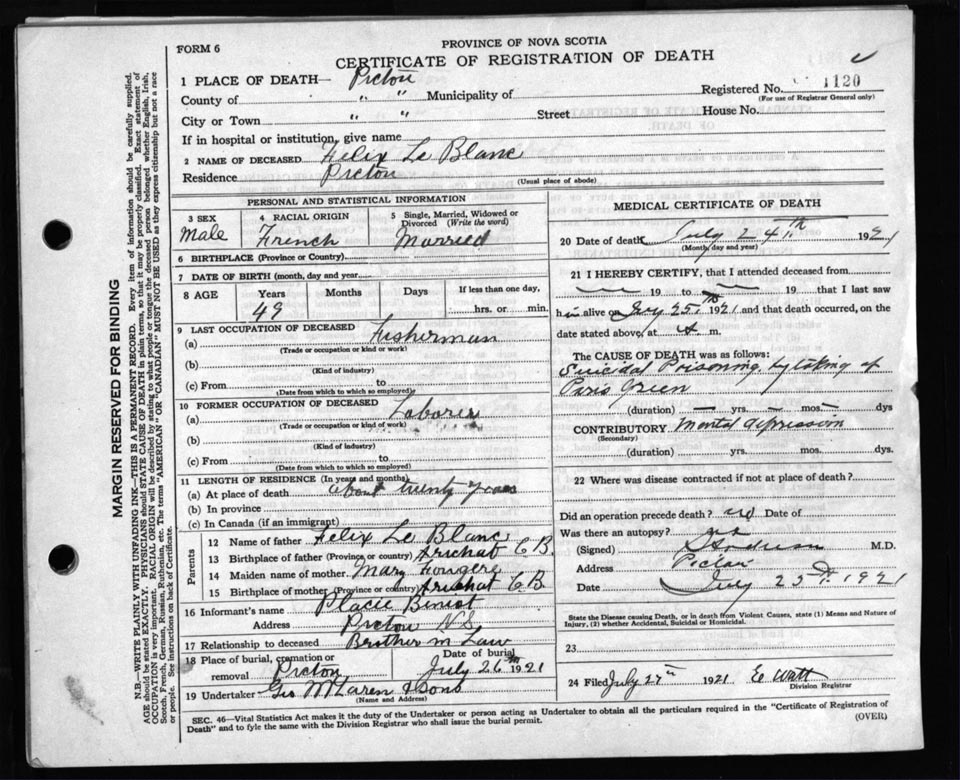 FORM 6
PROVINCE OF NOVA SCOTIA
CERTIFICATE OF REGISTRATION OF DEATH
1 PLACE OF DEATH— Pictou
Registered No. 1120
(For use of Registrar General only)
County of " " Municipality of
City or Town " " Street House No.
If in hospital or institution, give name
2 NAME OF DECEASED Felix Le Blanc
Residence Pictou
(Usual place of abode)
PERSONAL AND STATISTICAL INFORMATION
3 SEX Male
4 RACIAL ORIGIN French
5 Single, Married, Widowed or Divorced (Write the word) Married
6 BIRTHPLACE (Province or Country)
7 DATE OF BIRTH (month, day and year)
8 AGE Years 49 Months Days If less than one day, hrs. or min.
9 LAST OCCUPATION OF DECEASED
(a) Fisherman
(Trade or occupation or kind of work)
(b)
(Kind of industry)
(c) From to
(Date from which to which so employed)
10 FORMER OCCUPATION OF DECEASED
(a) Laborer
(Trade or occupation or kind of work)
(b)
(Kind of industry)
(c) From to
(Date from which to which so employed)
11 LENGTH OF RESIDENCE (In years and months)
(a) At place of death about twenty years
(b) In province
(c) In Canada (if an immigrant)
Parents
12 Name of father Felix Le Blanc
13 Birthplace of father (Province or country) Arichat C B.
14 Maiden name of mother Mary Fougere
15 Birthplace of mother (Province or country) Arichat C B
16 Informant's name Placie Benoit
Address Pictou N S
17 Relationship to deceased Brother in Law
18 Place of burial, cremation or removal Pictou
Date of burial July 26th 1921
19 Undertaker Geo McLaren & Sons
(Name and Address)
MEDICAL CERTIFICATE OF DEATH
20 Date of death July 24th 1921
(Month, day and year)
21 I HEREBY CERTIFY, that I attended deceased from
— 19 to — 19 that I last saw
him alive on July 25th 1921 and that death occurred, on the
date stated above, at A m.
The CAUSE OF DEATH was as follows:
Suicidal Poisoning by taking of
Paris Green
(duration) — yrs. — mos. — dys
CONTRIBUTORY Mental depression
(Secondary)
(duration) yrs. mos. dys.
22 Where was disease contracted if not at place of death?
Did an operation precede death? no Date of
Was there an autopsy? no
(Signed) M.D.
Address Pictou
Date July 25th 1921
State the Disease causing Death, or in death from Violent Causes, state (1) Means and Nature of
Injury, (2) whether Accidental, Suicidal or Homicidal.
23
24 Filed July 27th 1921 E Watt
Division Registrar
SEC. 46—Vital Statistics Act makes it the duty of the Undertaker or person acting as Undertaker to obtain all the particulars required in the "Certificate of Registration of
Death" and to fyle the same with the Division Registrar who shall issue the burial permit.
(OVER)
MARGIN RESERVED FOR BINDING
N.B.—WRITE PLAINLY WITH UNFADING INK—THIS IS A PERMANENT RECORD. Every item of information should be carefully supplied.
AGE should be stated EXACTLY. PHYSICIANS should STATE CAUSE OF DEATH in plain terms, so that it may be properly classified. Exact statement of
OCCUPATION is very important. RACIAL ORIGIN will be described by stating to what people or tongue the deceased person belonged whether English, Irish,
Scotch, French, German, Russian, Ruthenian, etc. The terms "AMERICAN" OR "CANADIAN" MUST NOT BE USED as they express citizenship but not a race
or people. See instructions on back of Certificate.